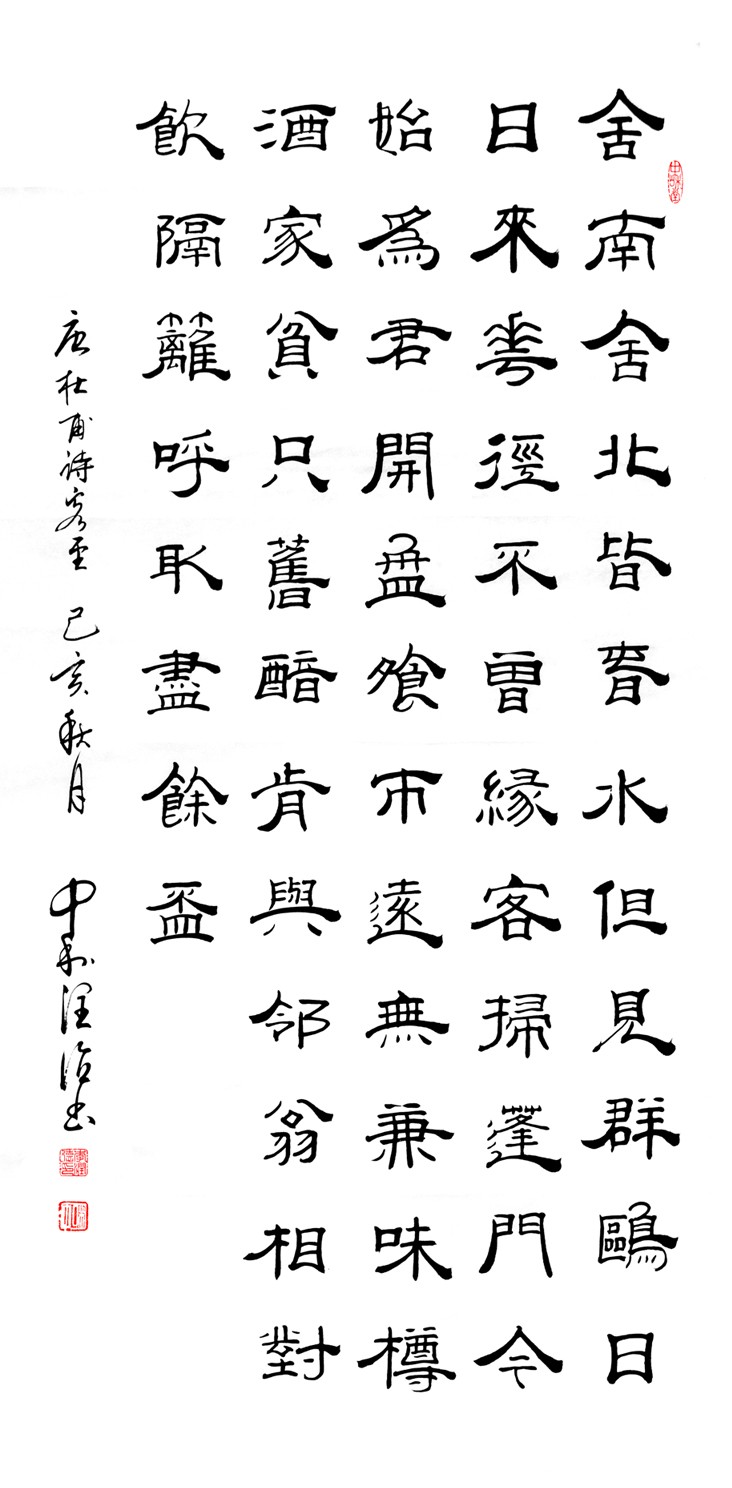 舍南舍北皆春水但見群鷗日
日來華徑不曾緣客掃蓬門今
始爲君開盤飱市遠無兼味樽
酒家貧只舊醅肯與邻翁相對
飲隔籬呼取盡餘盃
唐杜甫詩客至 己亥秋月 中 汪 書